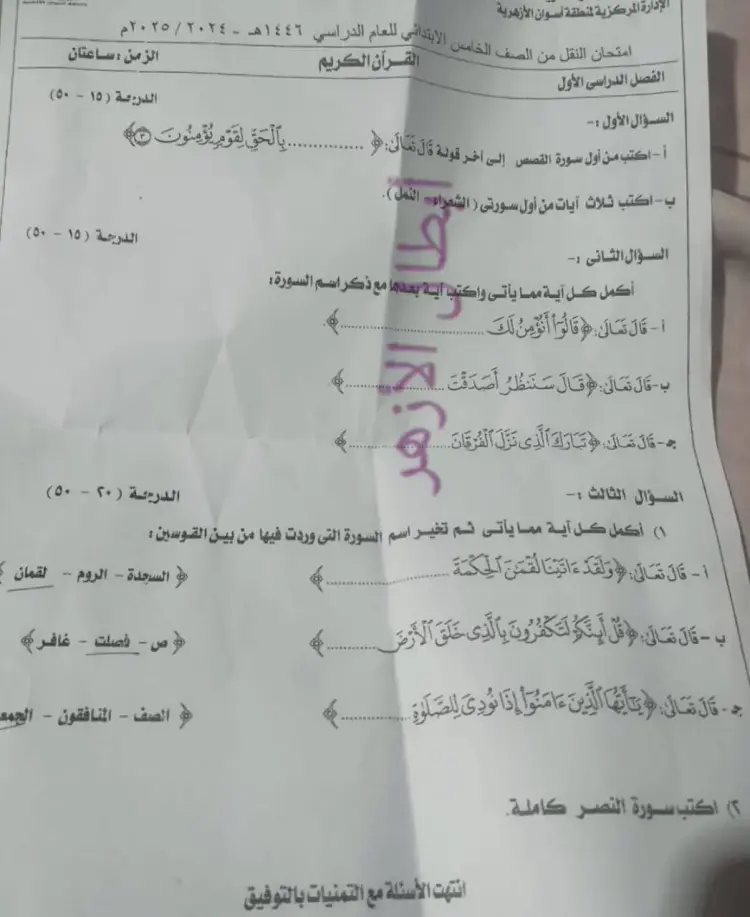 الإدارة المركزية لمنطقة أسوان الأزهرية
امتحان النقل من الصف الخامس الابتدائي للعام الدراسي ١٤٤٦هـ - ٢٠٢٤ / ٢٠٢٥م
الفصل الدراسى الأول القرآن الكريم الزمن: ساعتان
السؤال الأول :- الدرجة (١٥ - ٥٠)
أ- اكتب من أول سورة القصص إلى آخر قولة قَالَ تَعَالَىٰ: ﴿ .............. بِٱلْحَقِّ لِقَوْمٍ يُؤْمِنُونَ ٣﴾
ب- اكتب ثلاث آيات من أول سورتى ( الشعراء - النمل ).
السؤال الثانى :- الدرجة (١٥ - ٥٠)
أكمل كل آية مما يأتى واكتب آية بعدها مع ذكر اسم السورة:
أ- قَالَ تَعَالَىٰ: ﴿ قَالُوٓا۟ أَنُؤْمِنُ لَكَ .............. ﴾.
ب- قَالَ تَعَالَىٰ: ﴿ قَالَ سَنَنظُرُ أَصَدَقْتَ .............. ﴾
جـ- قَالَ تَعَالَىٰ: ﴿ تَبَارَكَ ٱلَّذِى نَزَّلَ ٱلْفُرْقَانَ .............. ﴾
أبطال الأزهر
السؤال الثالث :- الدرجة (٢٠ - ٥٠)
١) أكمل كل آية مما يأتى ثم تخير اسم السورة التى وردت فيها من بين القوسين:
أ- قَالَ تَعَالَىٰ: ﴿ وَلَقَدْ ءَاتَيْنَا لُقْمَٰنَ ٱلْحِكْمَةَ .............. ﴾ ﴿ السجدة - الروم - لقمان ﴾
ب- قَالَ تَعَالَىٰ: ﴿ قُلْ أَئِنَّكُمْ لَتَكْفُرُونَ بِٱلَّذِى خَلَقَ ٱلْأَرْضَ .............. ﴾ ﴿ ص - فصلت - غافر ﴾
جـ- قَالَ تَعَالَىٰ: ﴿ يَٰٓأَيُّهَا ٱلَّذِينَ ءَامَنُوٓا۟ إِذَا نُودِىَ لِلصَّلَوٰةِ .............. ﴾ ﴿ الصف - المنافقون - الجمع
٢) اكتب سورة النصر كاملة.
انتهت الأسئلة مع التمنيات بالتوفيق